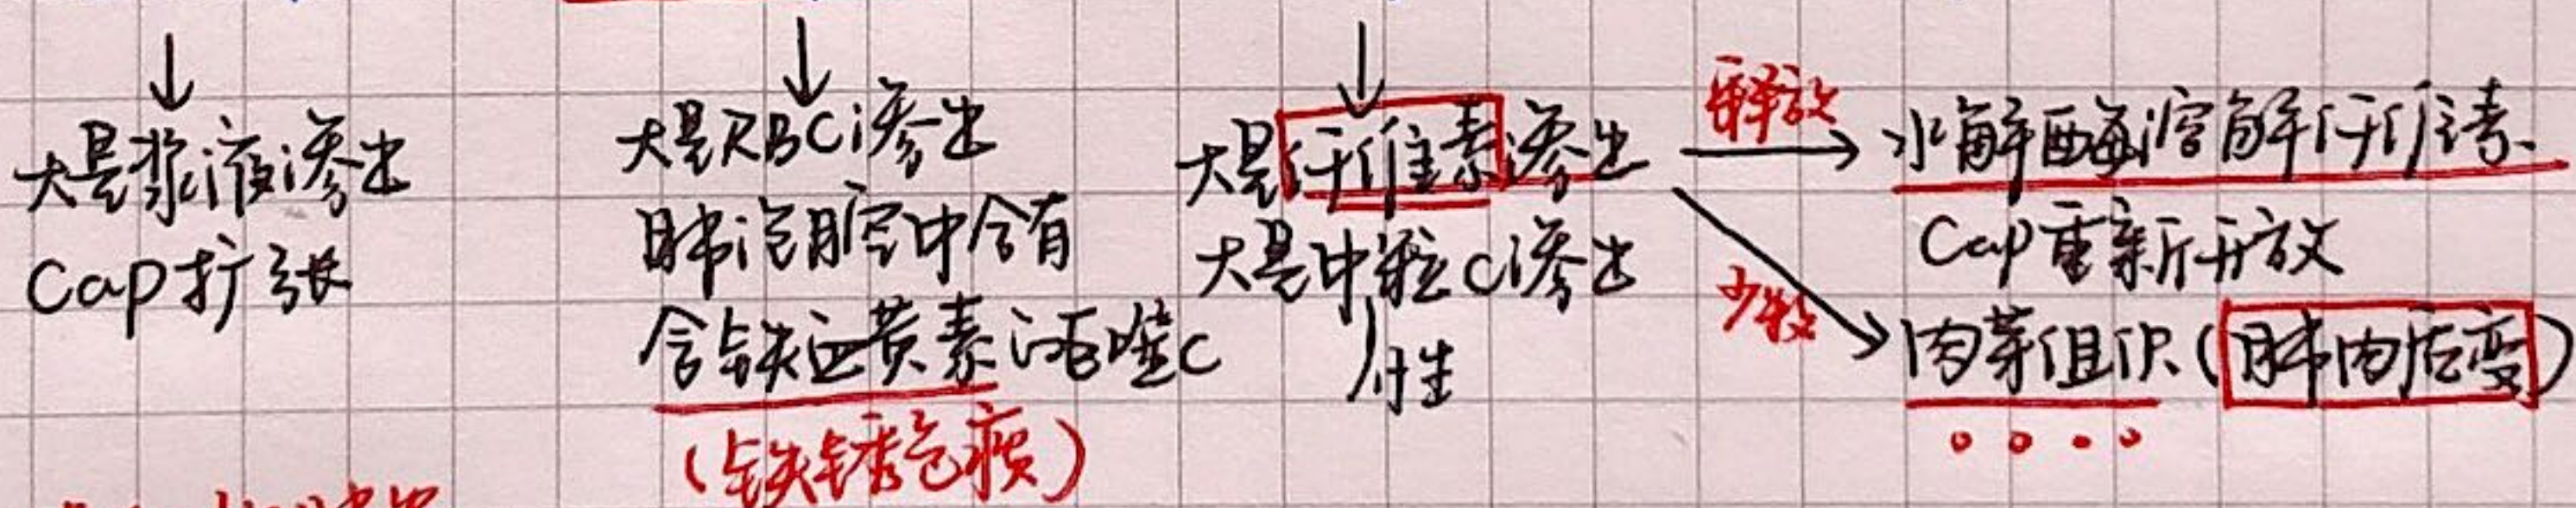 大量浆液渗出
Cap扩张
大量RBC渗出
肺泡腔中含有
含铁血黄素沉着噬C
(铁锈色痰)
大量纤维素渗出
大量中粒C渗出
释放
水解酶溶解纤维素
Cap重新开放
少数
肉芽组织(肺肉质变)